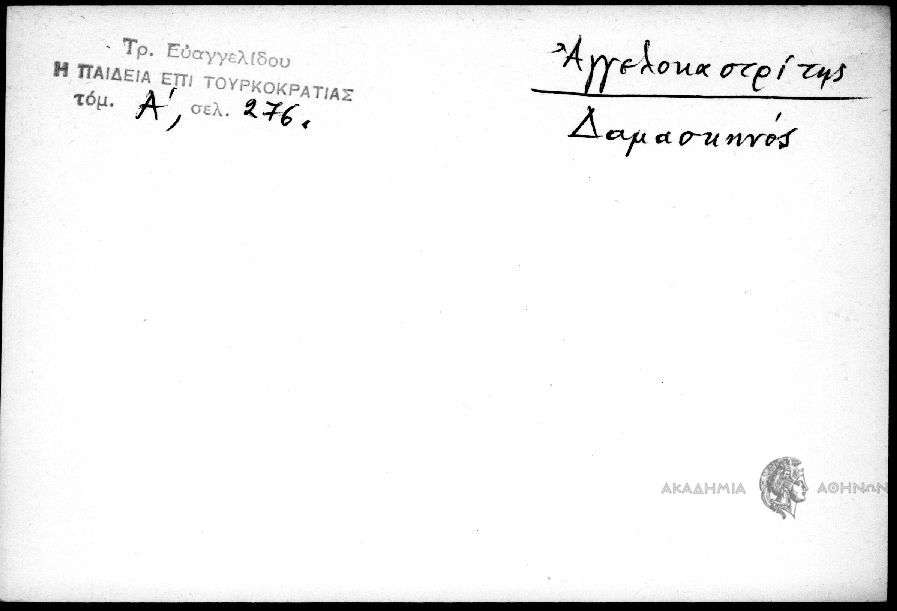 Τρ. Εὐαγγελίδου
Η ΠΑΙΔΕΙΑ ΕΠΙ ΤΟΥΡΚΟΚΡΑΤΙΑΣ
τόμ. Α', σελ. 276.
Ἀγγελοκαστρίτης
Δαμασκηνός
ΑΚΑΔΗΜΙΑ ΑΘΗΝΩΝ